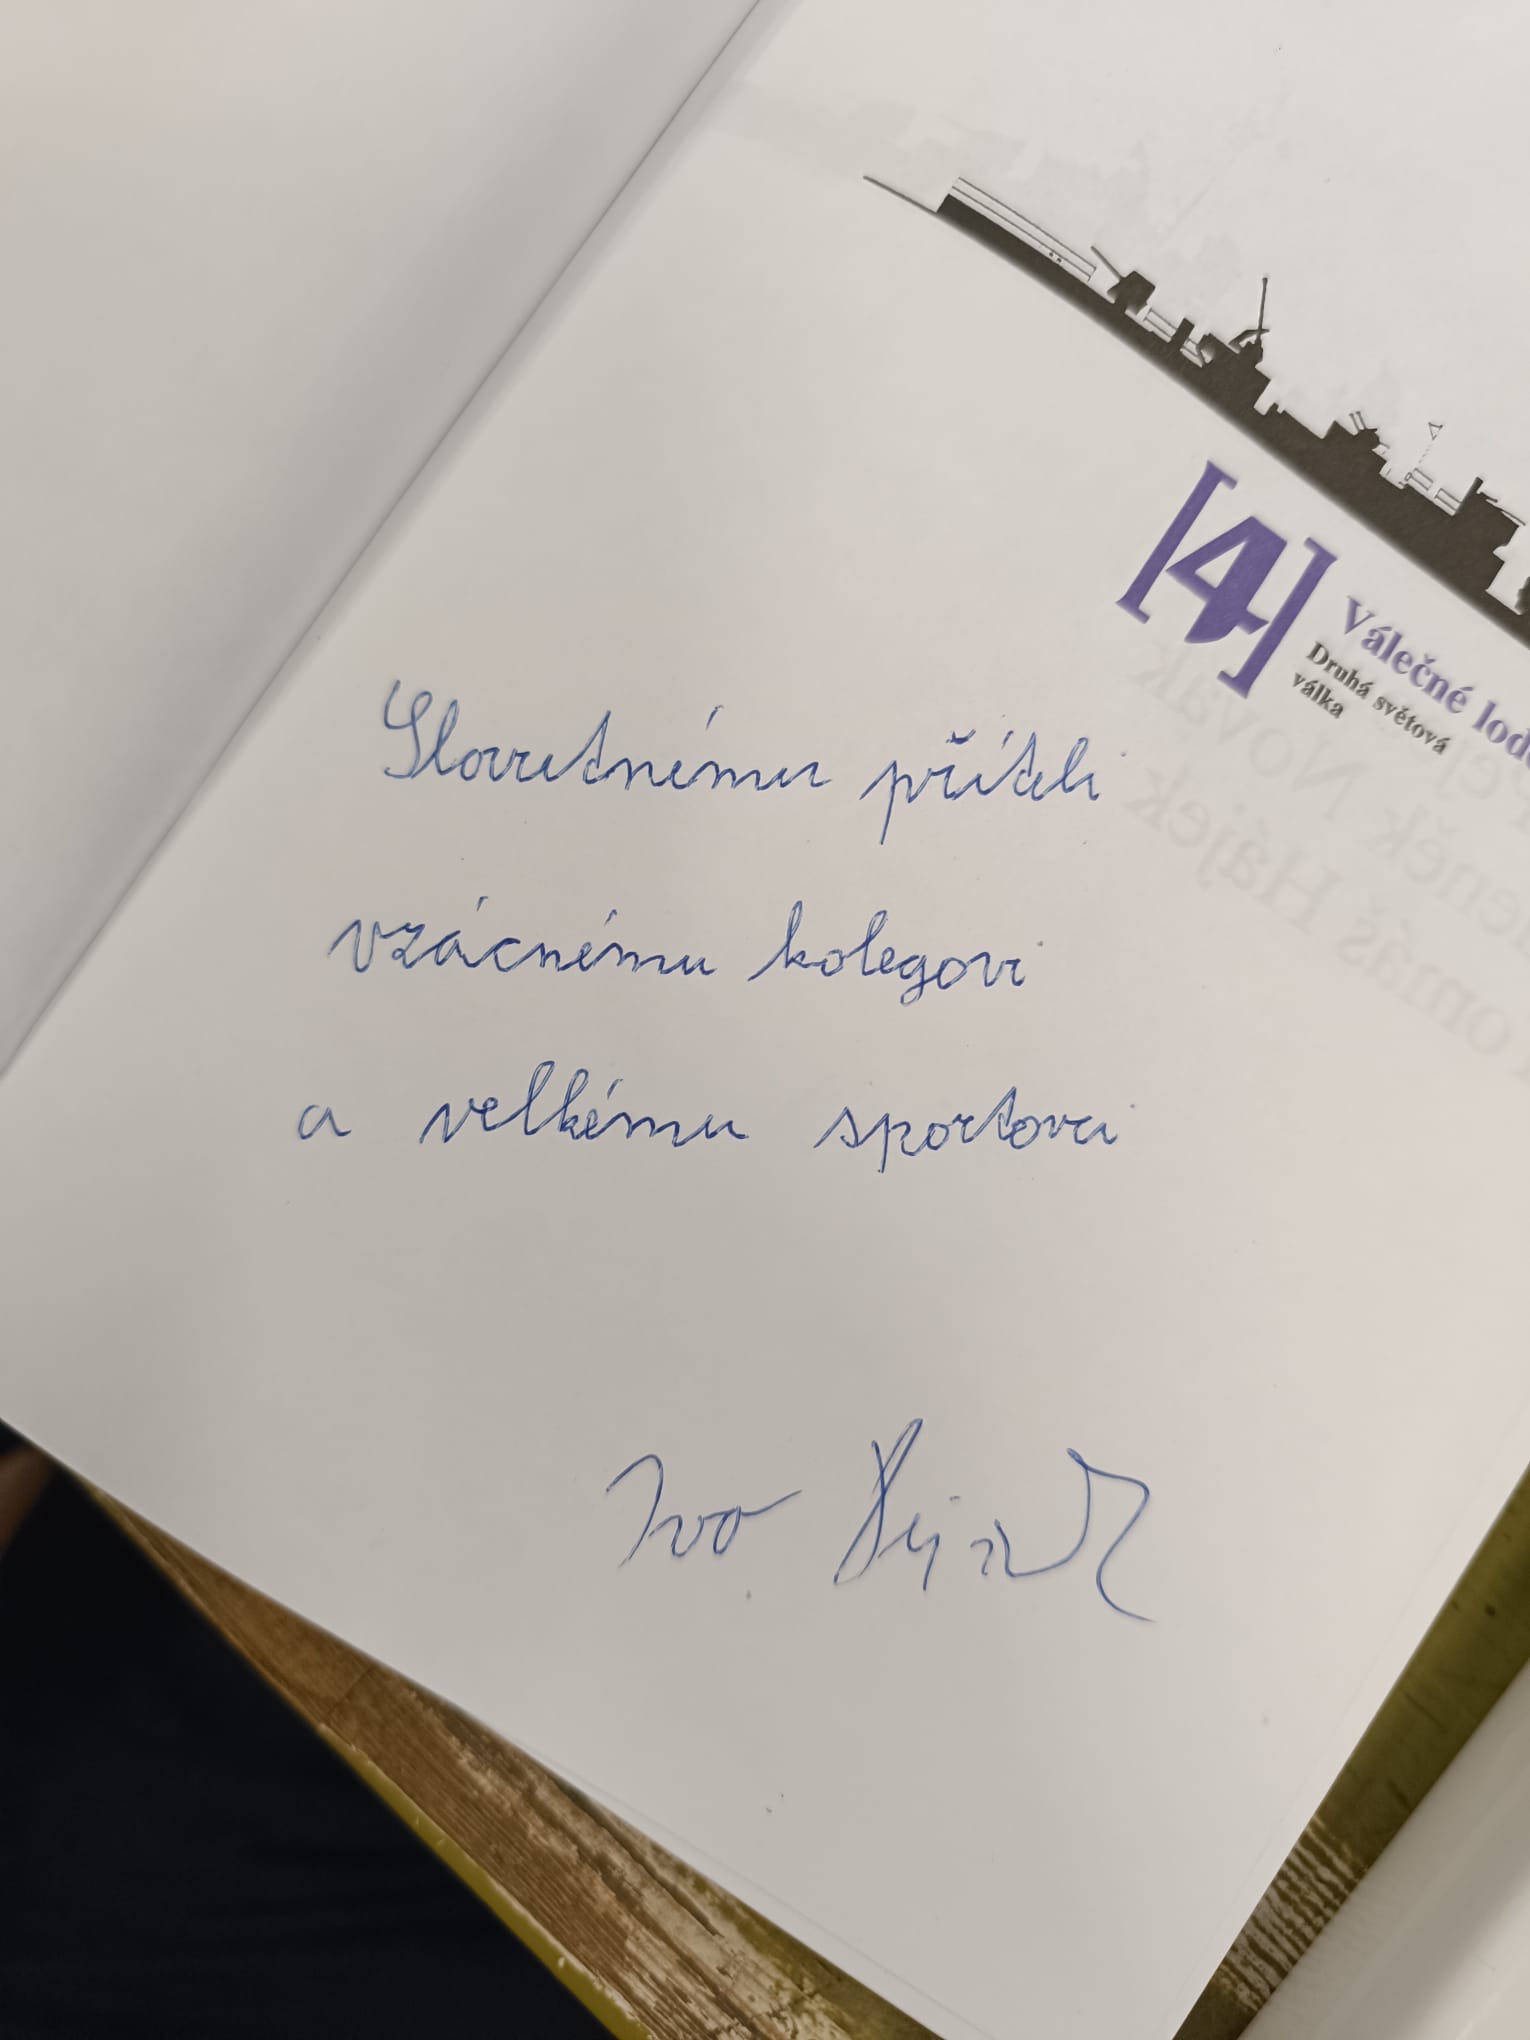 [4]
Válečné lodě
Druhá světová
válka
Slovutnému příteli
vzácnému kolegovi
a velkému sportovci
Ivo